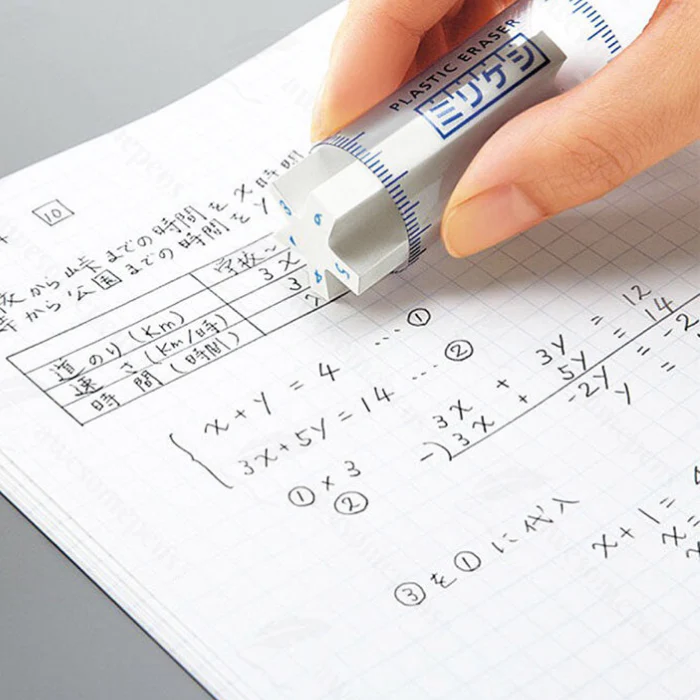 PLASTIC ERASER
ミリケシ
3 6
4 5
10
から峠までの時間を x 時間
から公園までの時間を y
学校~
道のり(Km) 3x
速さ(Km/時) 3
時間(時間)
x+y=4 … ①
3x+5y=14 … ②
①×3
②
3x + 3y = 12
-)3x + 5y = 14
-2y = -2
y =
③を①に代入
x+1=4
x=
x